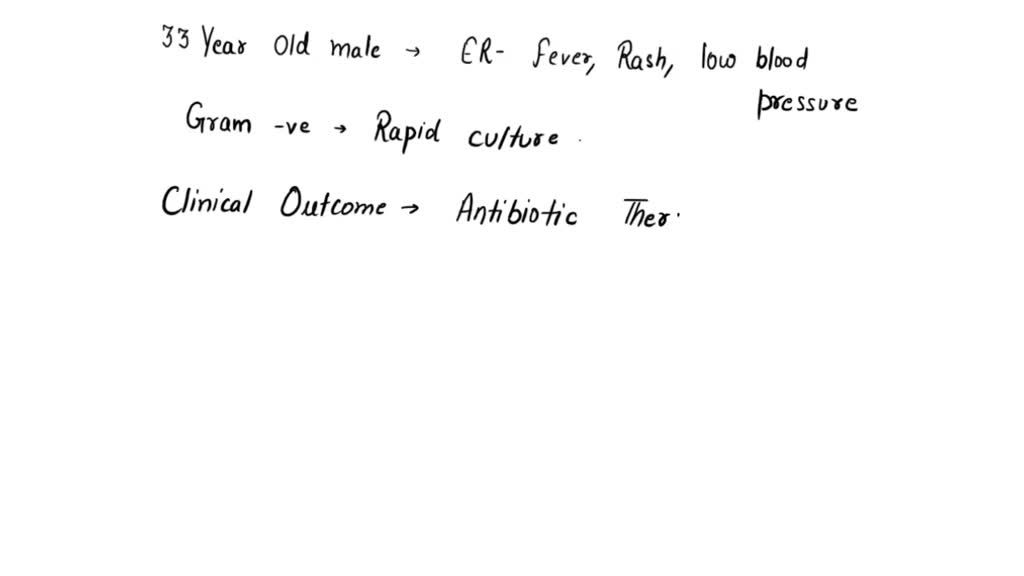 33 Year Old male → ER- fever, Rash, low blood
pressure
Gram -ve → Rapid culture.
Clinical Outcome → Antibiotic Ther.